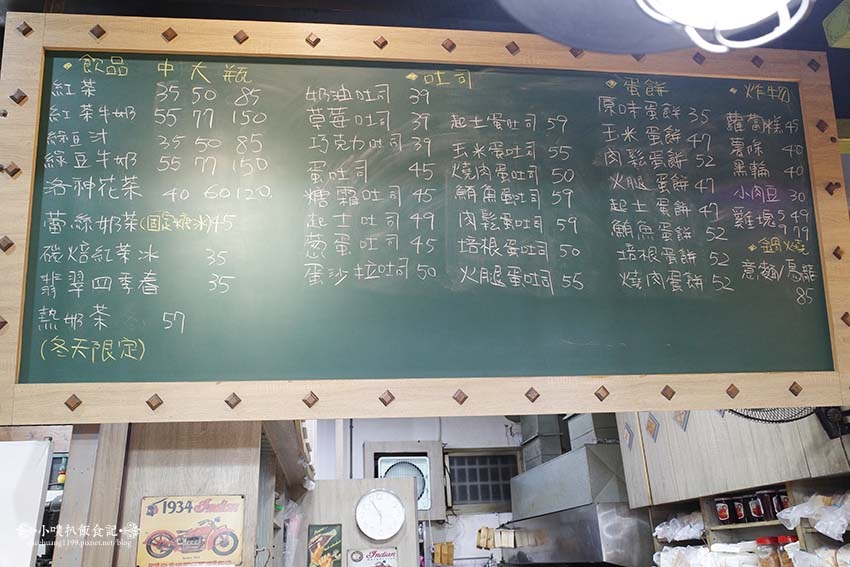 飲品 中 大 瓶
紅茶 35 50 85
紅茶牛奶 55 77 150
綠豆汁 35 50 85
綠豆牛奶 55 77 150
洛神花茶 40 60 120
蕾絲奶茶(固定糖冰)45
碳焙紅茶冰 35
翡翠四季春 35
熱奶茶 57
(冬天限定)
吐司
奶油吐司 39
草莓吐司 39
巧克力吐司 39
蛋吐司 45
糖霜吐司 45
起士吐司 49
蔥蛋吐司 45
蛋沙拉吐司 50
起士蛋吐司 59
玉米蛋吐司 55
燒肉蛋吐司 50
鮪魚蛋吐司 59
肉鬆蛋吐司 59
培根蛋吐司 50
火腿蛋吐司 55
蛋餅
原味蛋餅 35
玉米蛋餅 47
肉鬆蛋餅 52
火腿蛋餅 47
起士蛋餅 47
鮪魚蛋餅 52
培根蛋餅 52
燒肉蛋餅 52
炸物
蘿蔔糕 45
薯條 40
黑輪 40
小肉豆 30
雞塊 5 49
9 79
鍋燒
意麵/烏龍
85
1934 Indian
Indian
小噗趴飯食記